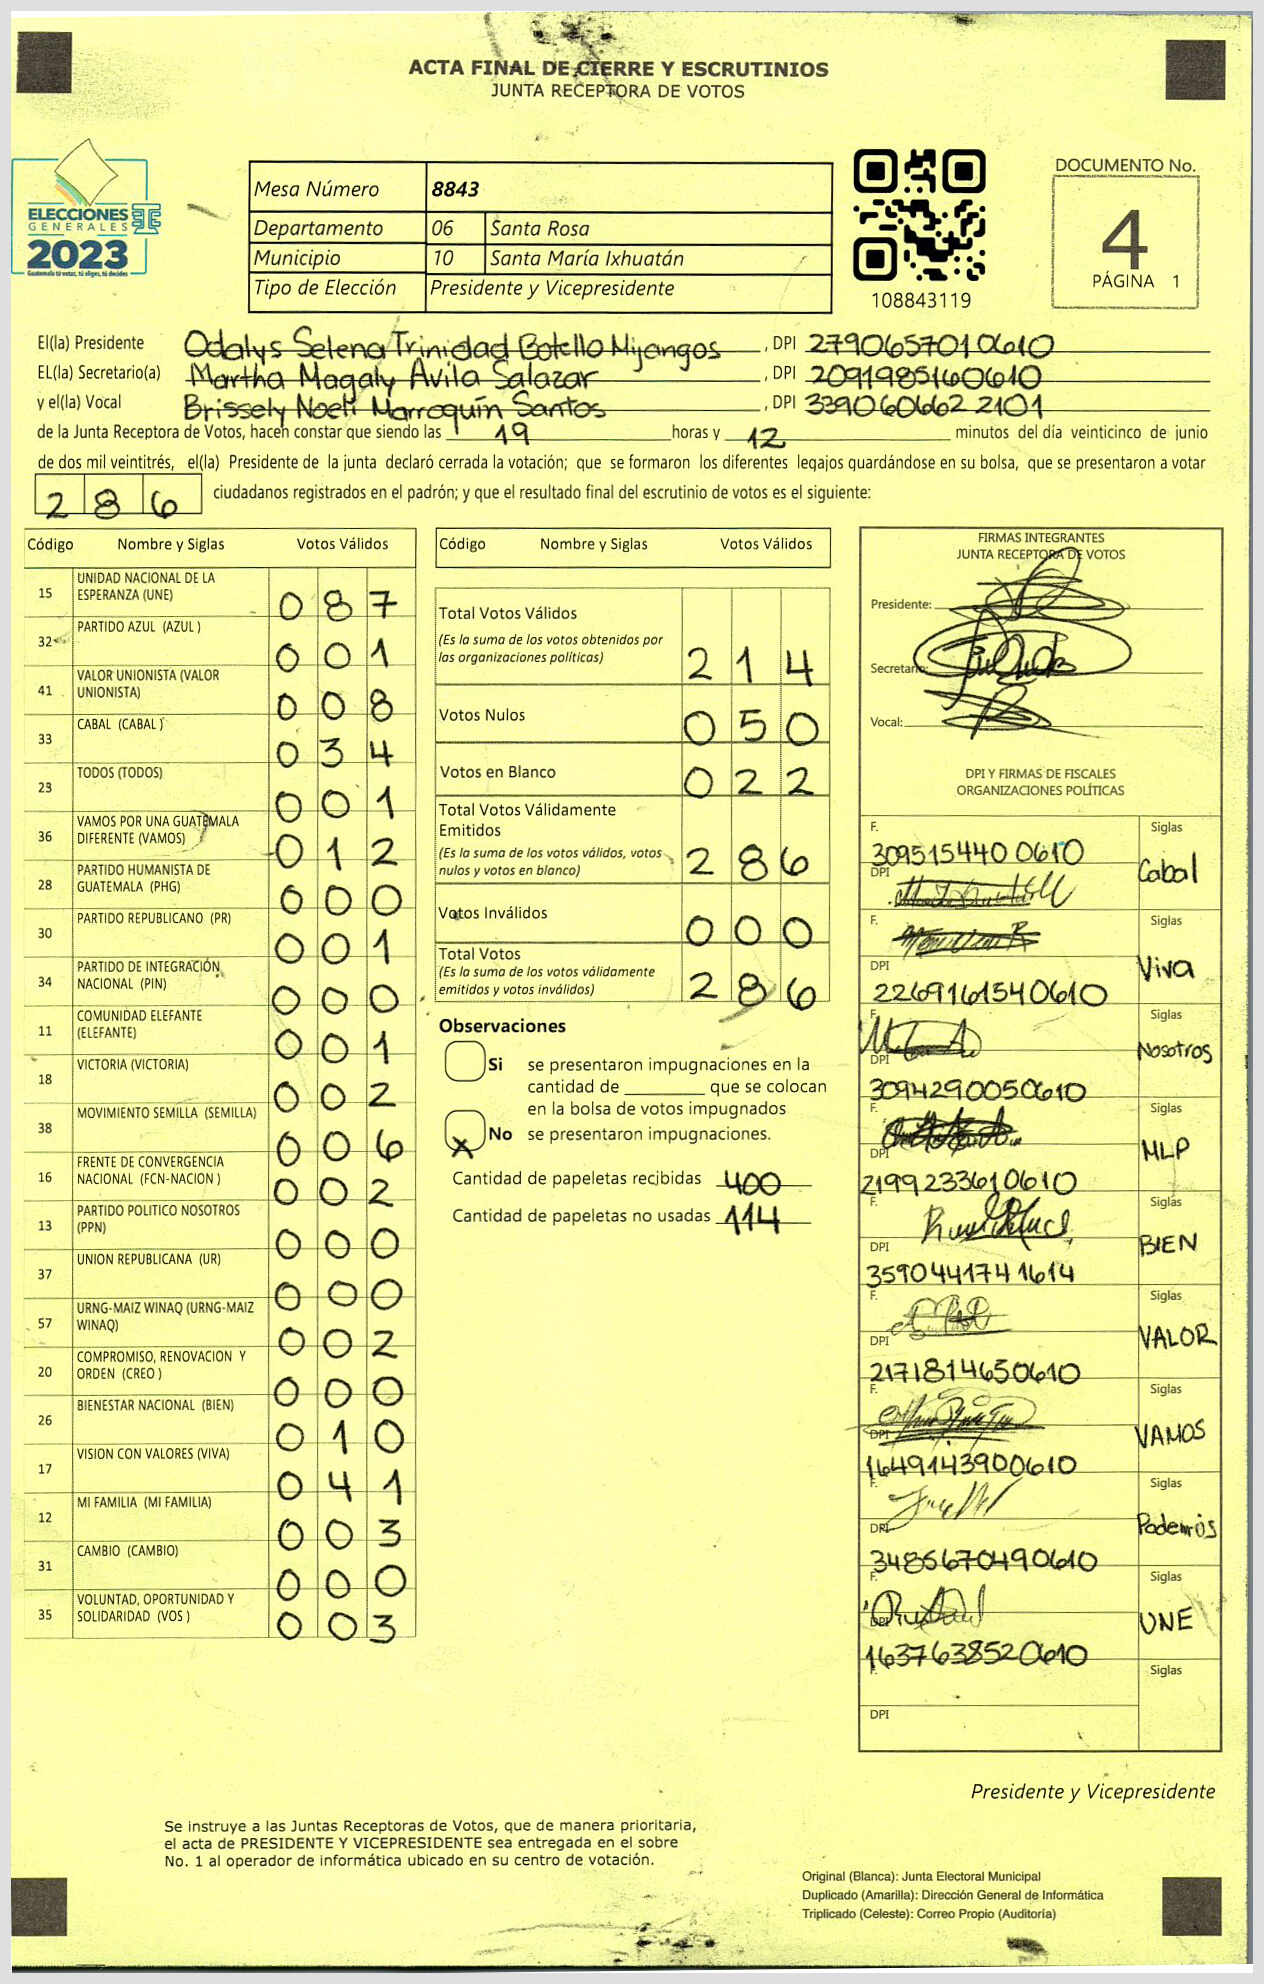 ACTA FINAL DE CIERRE Y ESCRUTINIOS
JUNTA RECEPTORA DE VOTOS
ELECCIONES
GENERALES
2023
Guatemala tú votas, tú eliges, tú decides
Mesa Número 8843
Departamento 06 Santa Rosa
Municipio 10 Santa María Ixhuatán
Tipo de Elección Presidente y Vicepresidente
108843119
DOCUMENTO No.
4
PÁGINA 1
El(la) Presidente Odalys Selena Trinidad Botello Mijangos , DPI 2790657010610
EL(la) Secretario(a) Martha Magaly Avila Salazar , DPI 2091985160610
y el(la) Vocal Brissely Noeli Marroquín Santos , DPI 3390606622101
de la Junta Receptora de Votos, hacen constar que siendo las 19 horas y 12 minutos del día veinticinco de junio
de dos mil veintitrés, el(la) Presidente de la junta declaró cerrada la votación; que se formaron los diferentes legajos guardándose en su bolsa, que se presentaron a votar
286 ciudadanos registrados en el padrón; y que el resultado final del escrutinio de votos es el siguiente:
Código Nombre y Siglas Votos Válidos
15 UNIDAD NACIONAL DE LA ESPERANZA (UNE) 087
32 PARTIDO AZUL (AZUL ) 001
41 VALOR UNIONISTA (VALOR UNIONISTA) 008
33 CABAL (CABAL ) 034
23 TODOS (TODOS) 001
36 VAMOS POR UNA GUATEMALA DIFERENTE (VAMOS) 012
28 PARTIDO HUMANISTA DE GUATEMALA (PHG) 000
30 PARTIDO REPUBLICANO (PR) 001
34 PARTIDO DE INTEGRACIÓN NACIONAL (PIN) 000
11 COMUNIDAD ELEFANTE (ELEFANTE) 001
18 VICTORIA (VICTORIA) 002
38 MOVIMIENTO SEMILLA (SEMILLA) 006
16 FRENTE DE CONVERGENCIA NACIONAL (FCN-NACION ) 002
13 PARTIDO POLITICO NOSOTROS (PPN) 000
37 UNION REPUBLICANA (UR) 000
57 URNG-MAIZ WINAQ (URNG-MAIZ WINAQ) 002
20 COMPROMISO, RENOVACION Y ORDEN (CREO ) 000
26 BIENESTAR NACIONAL (BIEN) 010
17 VISION CON VALORES (VIVA) 041
12 MI FAMILIA (MI FAMILIA) 003
31 CAMBIO (CAMBIO) 000
35 VOLUNTAD, OPORTUNIDAD Y SOLIDARIDAD (VOS ) 003
Código Nombre y Siglas Votos Válidos
Total Votos Válidos
(Es la suma de los votos obtenidos por
las organizaciones políticas) 214
Votos Nulos 050
Votos en Blanco 022
Total Votos Válidamente
Emitidos
(Es la suma de los votos válidos, votos
nulos y votos en blanco) 286
Votos Inválidos 000
Total Votos
(Es la suma de los votos válidamente
emitidos y votos inválidos) 286
Observaciones
Si se presentaron impugnaciones en la
cantidad de ________ que se colocan
en la bolsa de votos impugnados
X No se presentaron impugnaciones.
Cantidad de papeletas recibidas 400
Cantidad de papeletas no usadas 114
FIRMAS INTEGRANTES
JUNTA RECEPTORA DE VOTOS
Presidente:
Secretario:
Vocal:
DPI Y FIRMAS DE FISCALES
ORGANIZACIONES POLÍTICAS
F. Siglas
3095154400610 Cabal
DPI
F. Siglas
DPI Viva
2269161540610
F. Siglas
DPI Nosotros
3094290050610
F. Siglas
DPI MLP
2199233610610
F. Siglas
DPI BIEN
3590441741614
F. Siglas
DPI VALOR
2171814650610
F. Siglas
DPI VAMOS
1649143900610
F. Siglas
DPI Podemos
3485670490610
F. Siglas
DPI UNE
1637638520610
F. Siglas
DPI
Presidente y Vicepresidente
Se instruye a las Juntas Receptoras de Votos, que de manera prioritaria,
el acta de PRESIDENTE Y VICEPRESIDENTE sea entregada en el sobre
No. 1 al operador de informática ubicado en su centro de votación.
Original (Blanca): Junta Electoral Municipal
Duplicado (Amarilla): Dirección General de Informática
Triplicado (Celeste): Correo Propio (Auditoría)